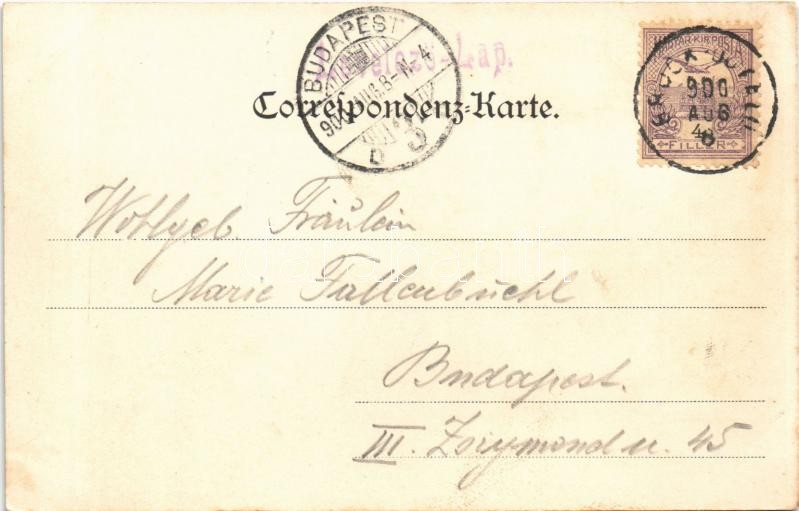 BUDAPEST
900 AUG. 8-N. 4
D 3
-Lap.
Correspondenz-Karte.
MAGYAR KIR. POSTA
900
AUG
6
FILLÉR
Wohlgeb. Fräulein
Marie Fallenbüchl
Budapest.
III. Zsigmond u. 45